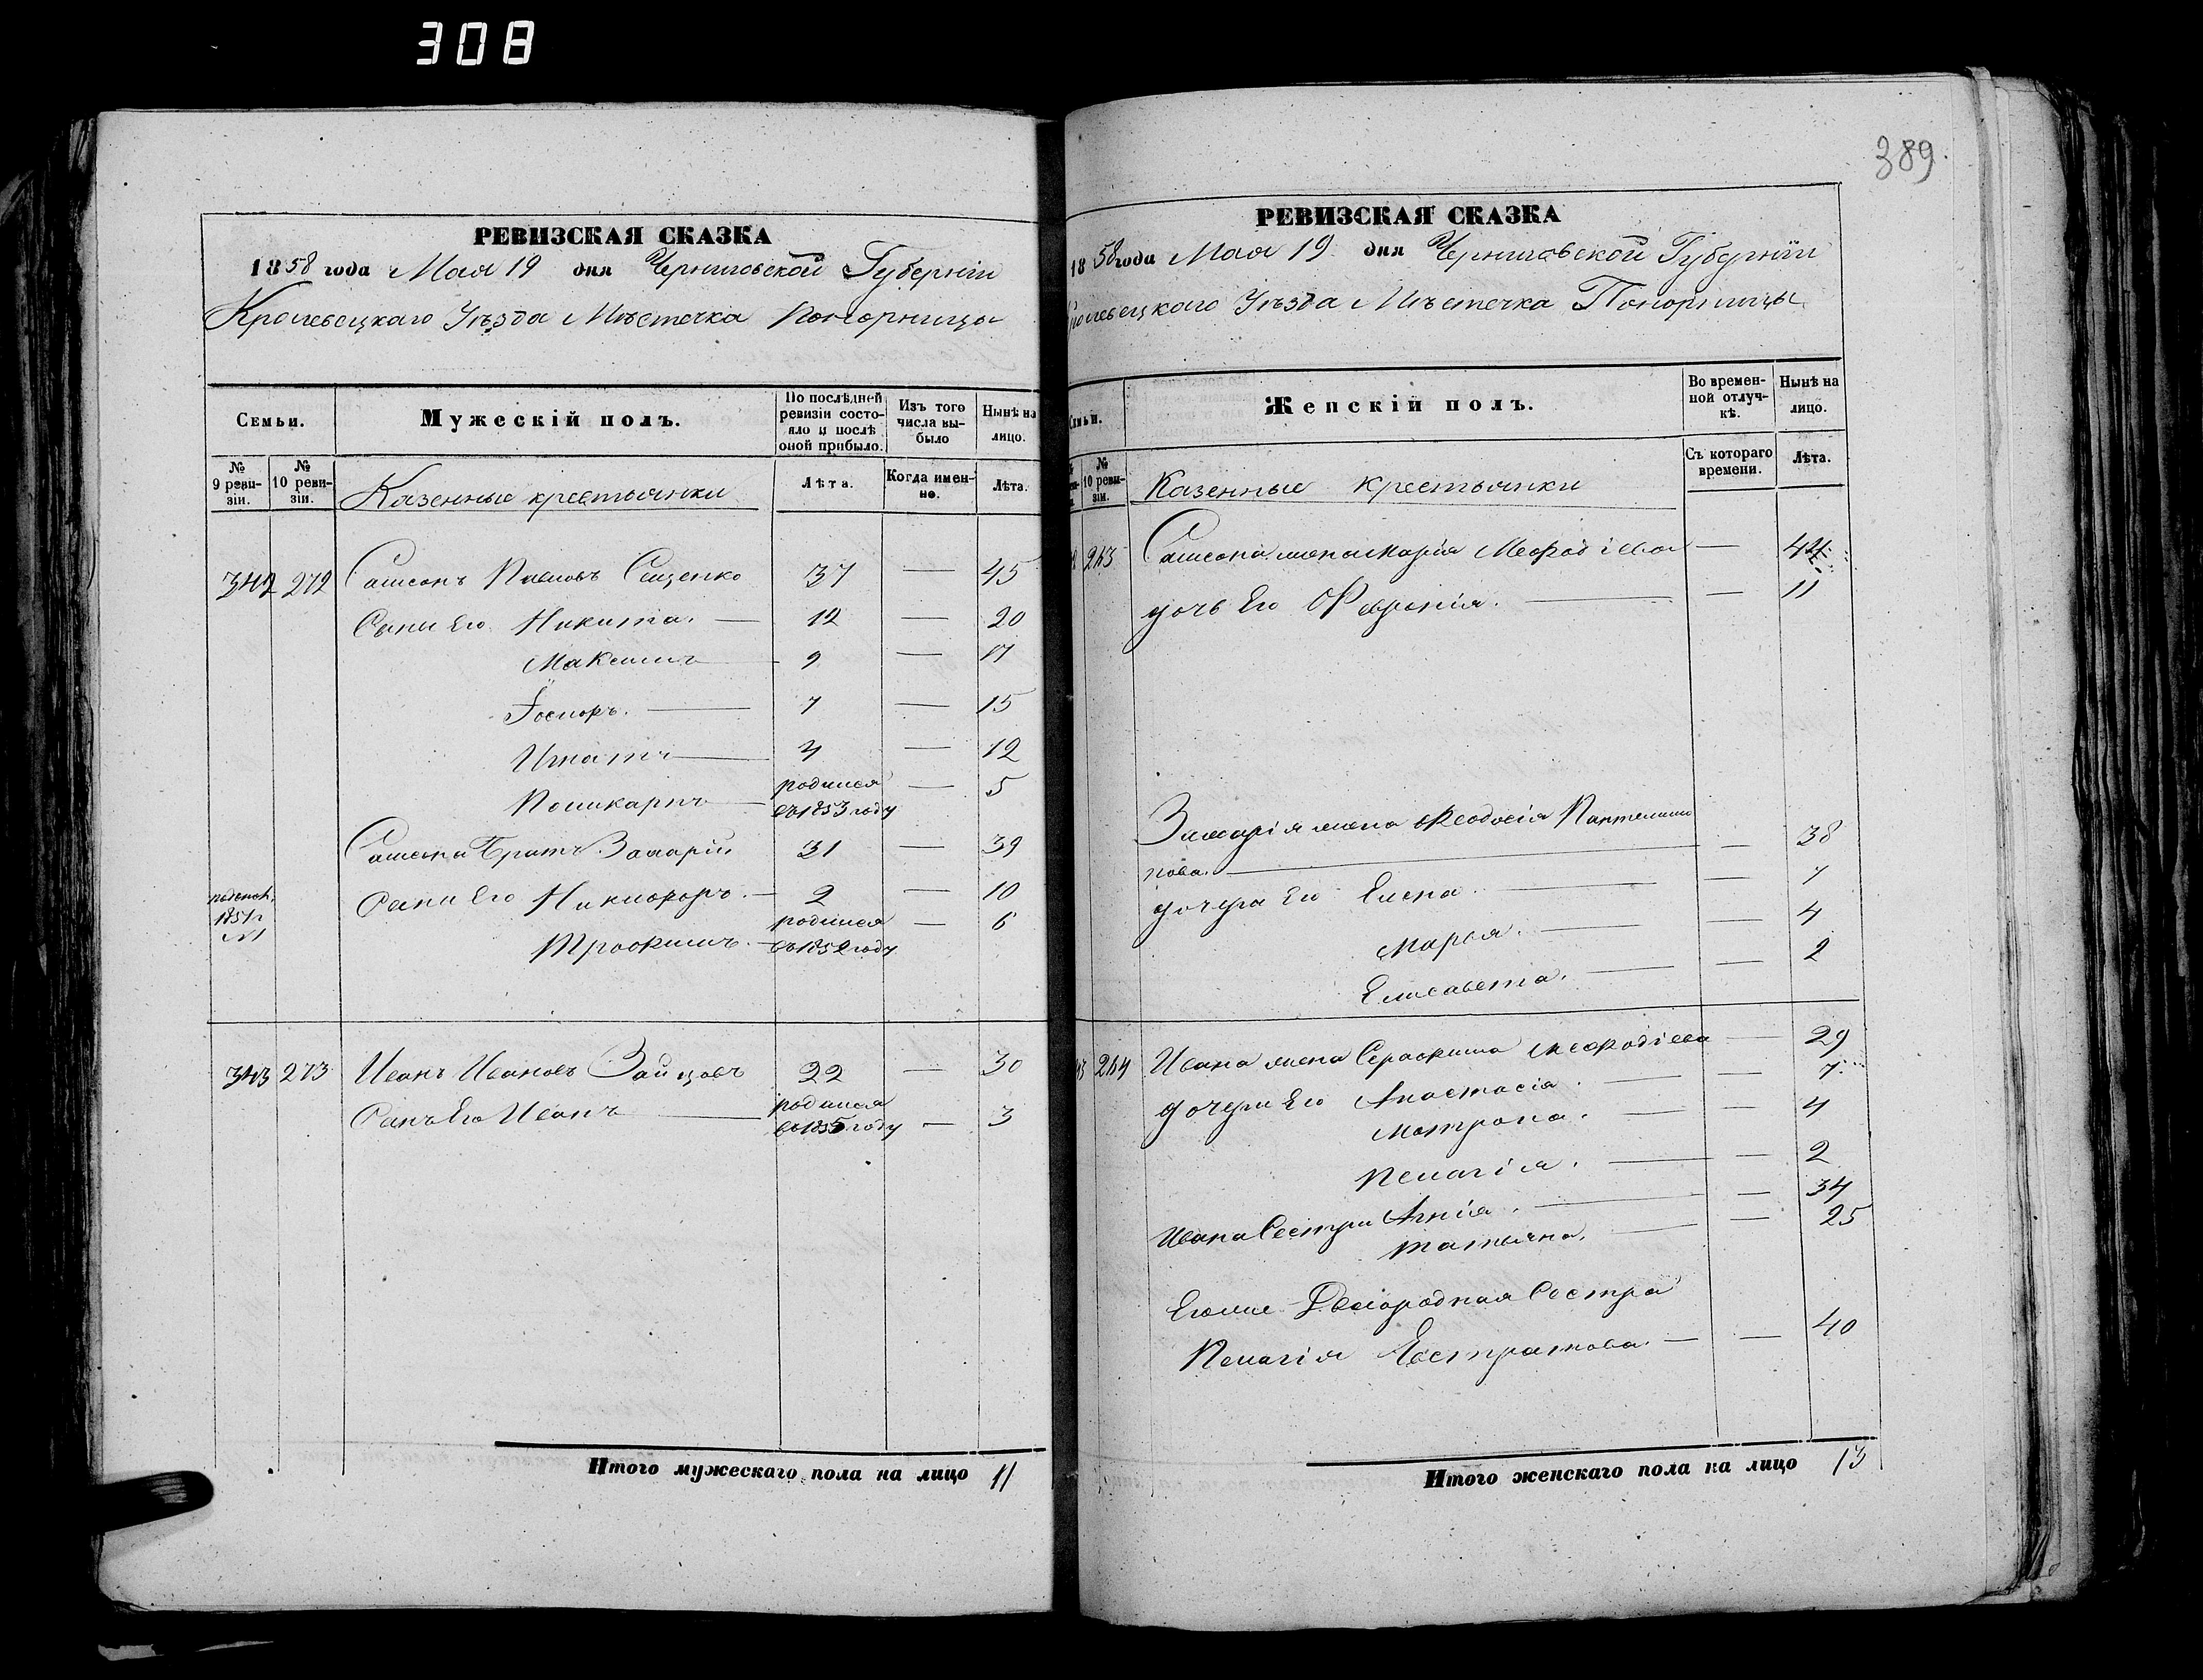 308
389.
РЕВИЗСКАЯ СКАЗКА
1858 года Мая 19 дня Черниговской Губерніи
Кролевецкаго Уѣзда Мѣстечка Понорницы
Семьи.
Мужескій полъ.
По послѣдней ревизіи состояло и послѣ оной прибыло.
Изъ того числа выбыло
Нынѣ на лицо.
№ 9 ревизіи.
№ 10 ревизіи.
Казенные крестьянки
Лѣта.
Когда именно.
Лѣта.
342 272 Самсонъ Павловъ Сищенко 37 — 45
Сыни Его Никита. — 12 — 20
Максимъ — 9 — 17
Іосифъ. — 7 — 15
Игнатъ — 4 — 12
Поликарпъ — родился въ 1853 году — 5
Самсона Братъ Захарій 31 — 39
Сыни Его Никифоръ. — 2 — 10
1851 г
№1
Трофимъ. — родился въ 1852 году — 6
343 273 Иванъ Ивановъ Зайцовъ 22 — 30
Сынъ Его Иванъ — родился въ 1855 году — 3
Итого мужескаго пола на лицо 11
РЕВИЗСКАЯ СКАЗКА
1858 года Мая 19 дня Черниговской Губерніи
Кролевецкаго Уѣзда Мѣстечка Понорницы
Семьи.
Женскій полъ.
Во временной отлучкѣ.
Нынѣ на лицо.
№ 10 ревизіи.
Казенные крестьянки
Съ котораго времени.
Лѣта.
Самсона жена Марія Мефодіева — 44
дочь Его Февронія. — — 11
Захарія жена Феодосія Пантелимонова. — — 38
дочери Его Елена — — 7
Марья. — — 4
Елисавета. — — 2
Ивана жена Серафима Мефодіева — 29
дочери Его Анастасія. — — 7
Матрона. — — 4
Пелагія. — — 2
Ивана Сестри Агнія. — — 34
Татьяна. — — 25
Егоже Двоюродная Сестра
Пелагія Евстратова. — — 40
Итого женскаго пола на лицо 13